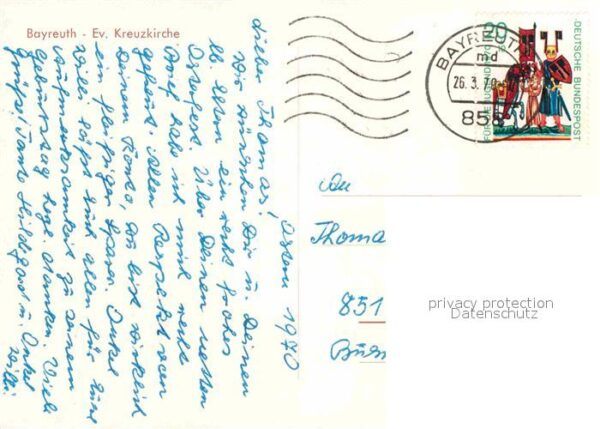 Bayreuth - Ev. Kreuzkirche
Ostern 1970
Lieber Thomas!
Wir wünschen Dir u. Deinen
lb. Eltern ein recht frohes
Osterfest. Über Deinen netten
Brief habe ich mich recht
gefreut. Allen Respekt von
Deinem Konto, Du bist wirklich
ein fleißiger Sparer. Onkel
Willi läßt Euch allen für Eure
Aufmerksamkeit zu seinem
Geburtstag herzl. danken. Viele
Grüße! Tante Hildegard u. Onkel
Willi.
BAYREUTH
md
26.3.70
858
20
DEUTSCHE BUNDESPOST
An
Thoma
851
privacy protection
Datenschutz